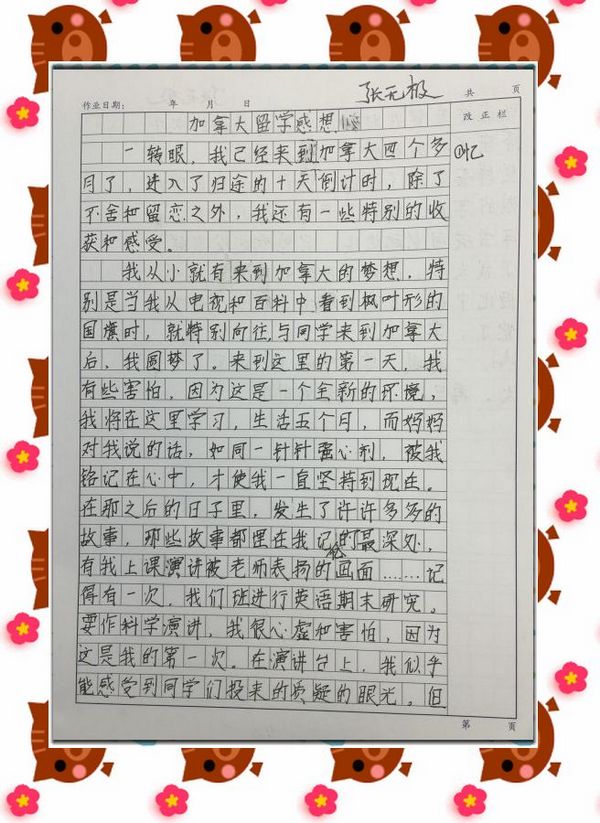 张元极
共 页
作业日期： 年 月 日
改正栏
加拿大留学感想
①忆
一转眼，我已经来到加拿大四个多
月了，进入了归途的十天倒计时，除了
不舍和留恋之外，我还有一些特别的收
获和感受。
我从小就有来到加拿大的梦想，特
别是当我从电视和百科中看到枫叶形的
国旗时，就特别向往，与同学来到加拿大
后，我圆梦了。来到这里的第一天，我
有些害怕，因为这是一个全新的环境，
我将在这里学习，生活五个月，而妈妈
对我说的话，如同一针针强心剂，被我
铭记在心中，才使我一直坚持到现在。
在那之后的日子里，发生了许许多多的
故事，那些故事都埋在我记忆的最深处，
有我上课演讲被老师表扬的画面……记
得有一次，我们班进行英语期末研究。
要作科学演讲，我很心虚和害怕，因为
这是我的第一次。在演讲台上，我似乎
能感受到同学们投来的质疑的眼光。但
第 页